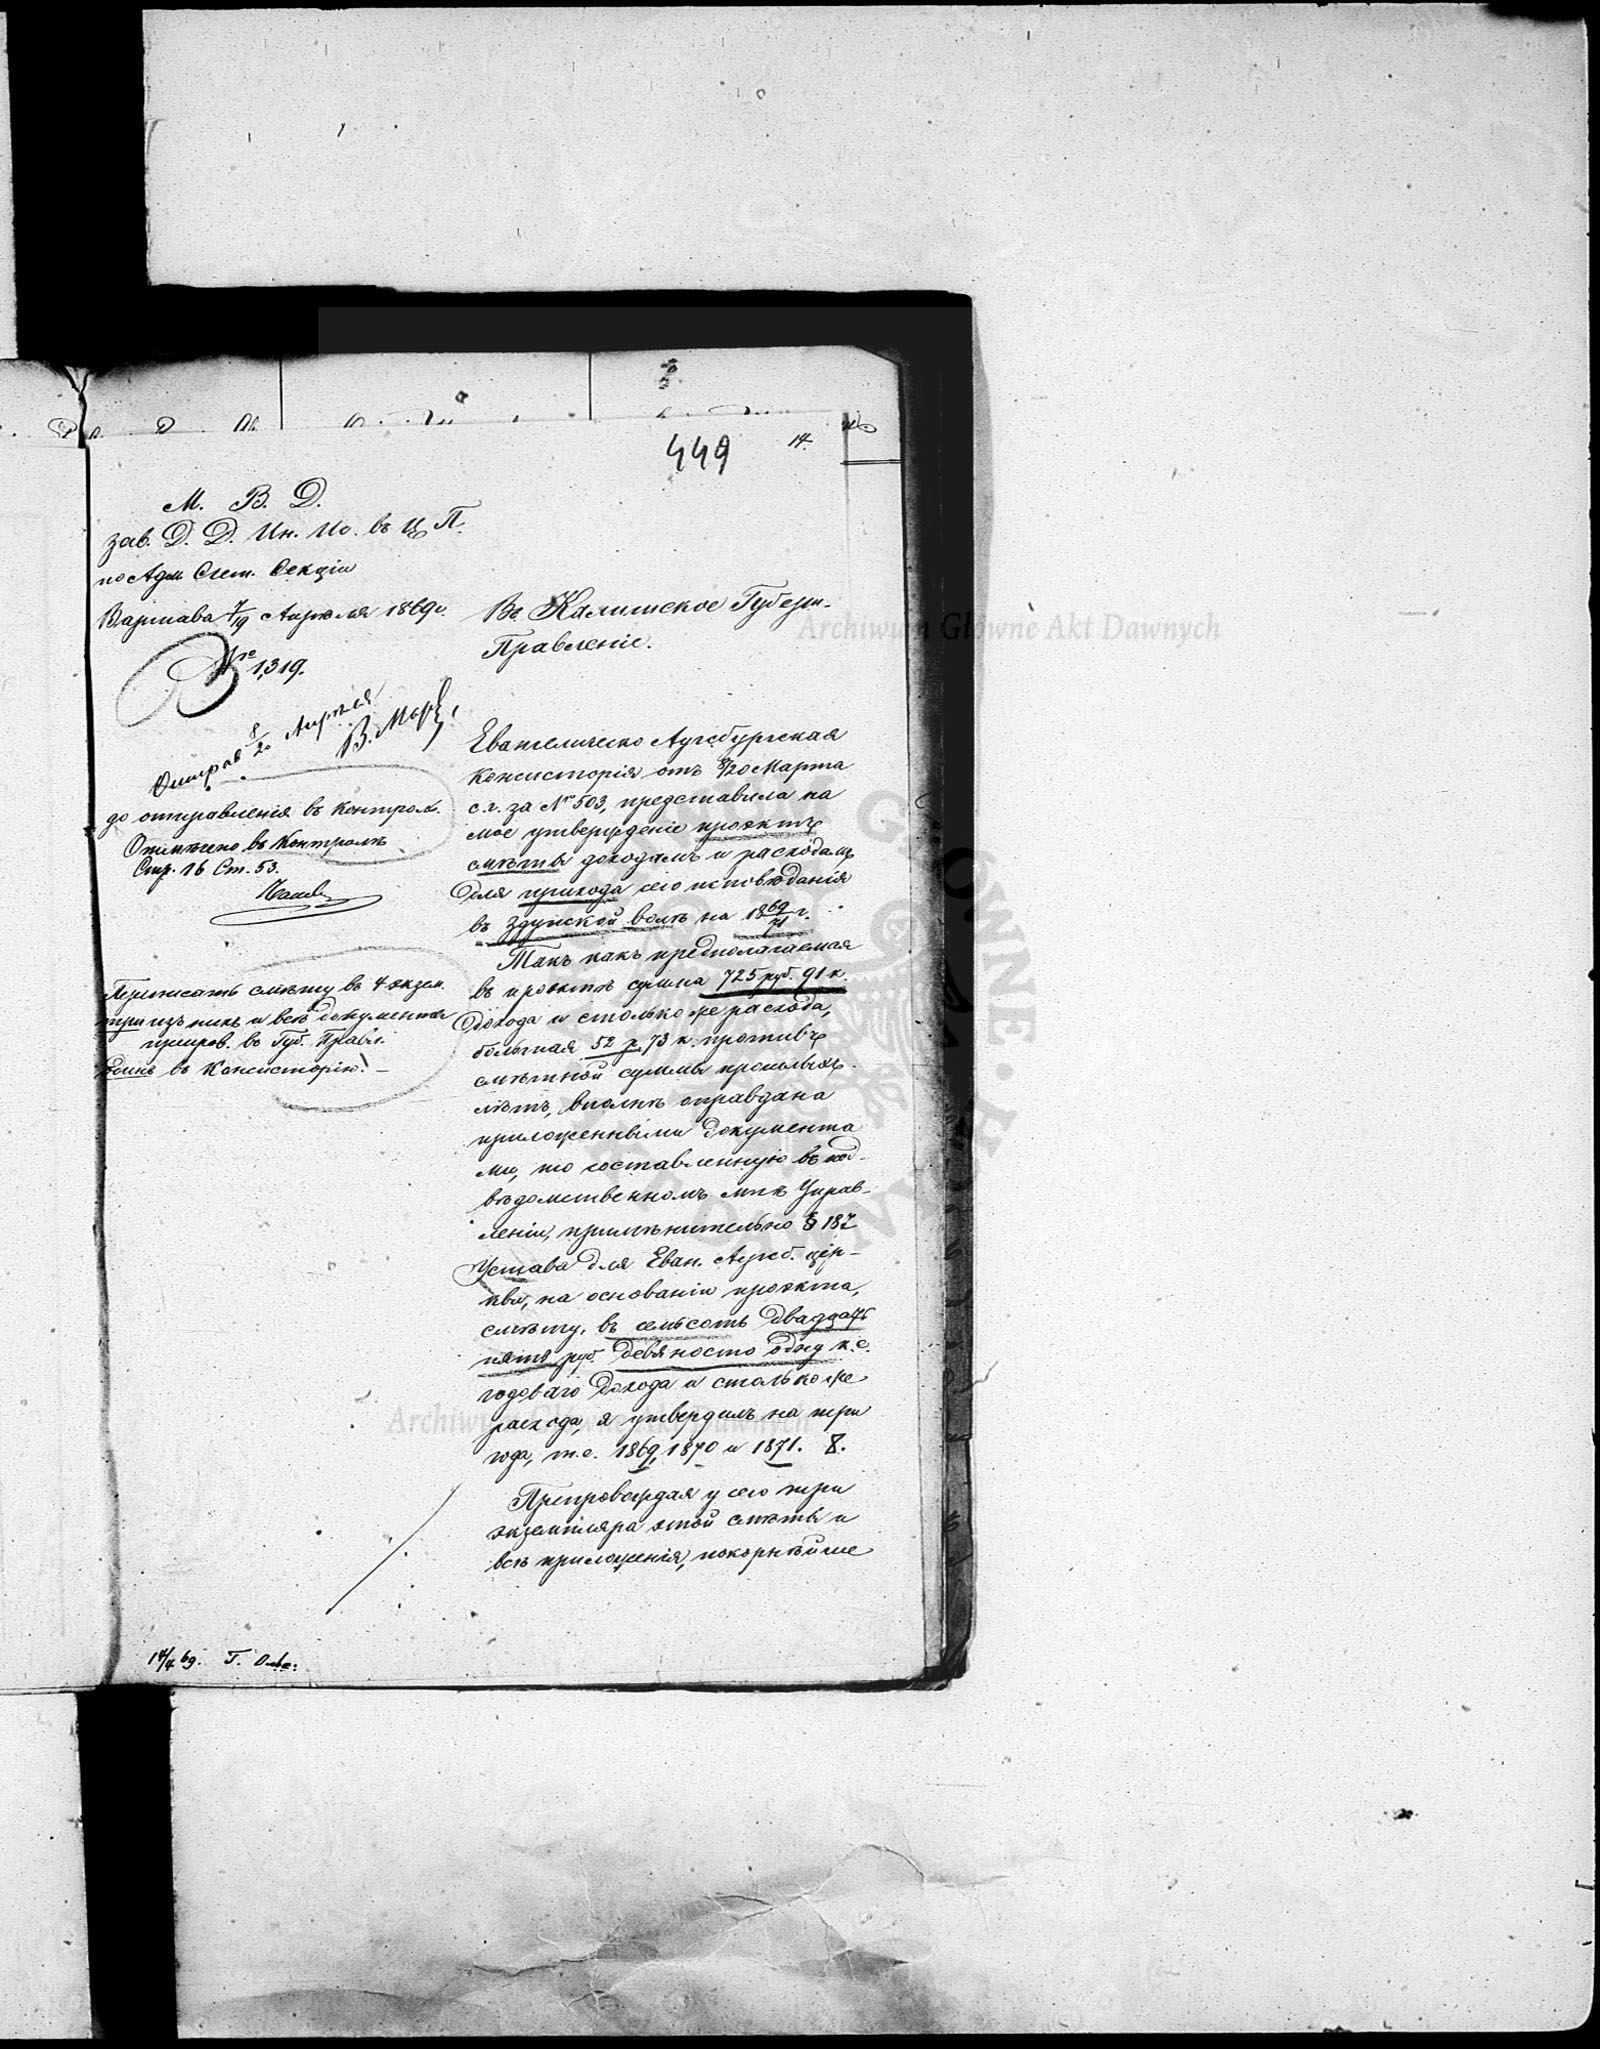 449
14.
М. В. Д.
зав. Д. Д. Ин. Ис. въ Ц. П.
по Адм. Счет. Секціи
Варшава 7/19 Апрѣля 1869 г.
№ 1,319.
Отправ 8/20 Апрѣля
до отправленія въ Контроль.
Отмѣчено въ Контролѣ
Стр. 16 Ст. 53.
Переписать смѣту въ 4 экзем.
три изъ нихъ и всѣ документы
препров. въ Губ. Правл.
Одинъ въ Консисторію. –
Въ Калишское Губерн.
Правленіе.
Евангелическо Аугсбургская
Консисторія отъ 8/20 Марта
с. г. за № 503, представила на
мое утвержденіе проэктъ
смѣты доходамъ и расходамъ
для прихода сего исповѣданія
въ Здунской волѣ на 1869/71 г.
Такъ какъ предполагаемая
въ проэктѣ сумма 725 руб. 91 к.
дохода и столько же расхода,
большая 52 р. 73 к. противъ
смѣтной суммы прошлыхъ
лѣтъ, вполнѣ оправдана
приложенными документа
ми, то составленную въ под-
вѣдомственномъ мнѣ Управ-
леніи, примѣнительно § 187
Устава для Еван. Аугсб. цер-
кви, на основаніи проэкта,
смѣту, въ семьсотъ двадцать
пять руб. девяносто одну к. с.
годоваго дохода и столько же
расхода, я утвердилъ на три
года, т. е. 1869, 1870 и 1871.
Препровождая у сего три
экземпляра этой смѣты и
всѣ приложенія, покорнѣйше
14/4 69.
Archiwum Główne Akt Dawnych
Archiwum Główne Akt Dawnych